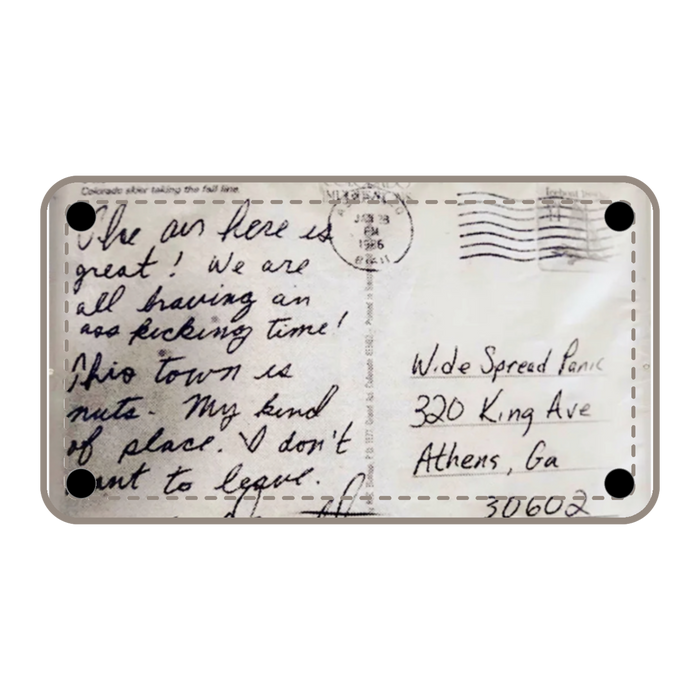 Colorado skier taking the fall line.
The air here is
great! We are
all having an
ass kicking time!
This town is
nuts. My kind
of place. I don't
want to leave.
JAN 28
PM
1986
Wide Spread Panic
320 King Ave
Athens, Ga
30602